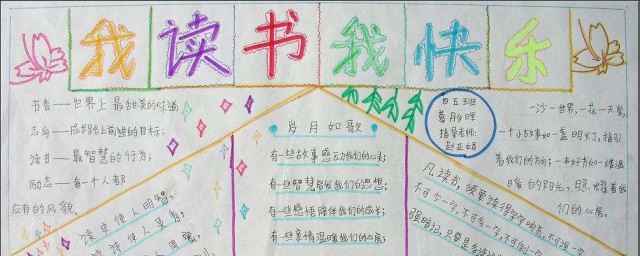 我读书我快乐
书香——世界上最甜美的味道
志向——成长路上前进的目标；
读书——最智慧的行为；
励志——每一个人都
应有的风貌。
读史使人明智，
读诗使人灵秀，
岁月如歌
有一些故事感动我们的心灵；
有一些智慧启发我们的思想；
有一些感悟陪伴我们的成长；
有一些亲情温暖我们的心房；
四五班
指导老师：
一沙一世界，一花一天堂，
一个小故事如一盏明灯，指引
着我们的方向；一本好书如一缕温
暖的阳光，照耀着我
们的心房。
凡读书，须要读得字字响亮，不可误一字，
不可少一字，不可多一字，不可倒一字，